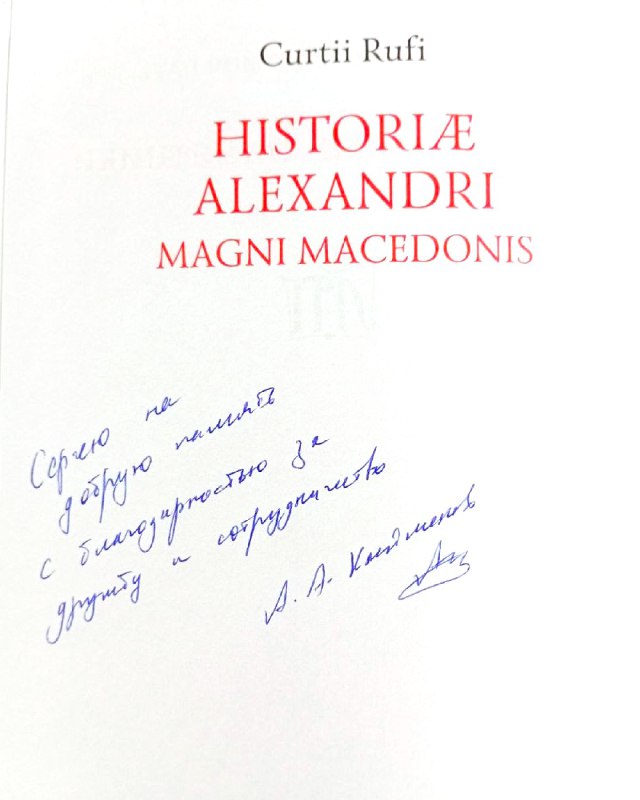 Curtii Rufi
HISTORIÆ
ALEXANDRI
MAGNI MACEDONIS
Сергею на
добрую память
с благодарностью за
дружбу и сотрудничество
А. А.